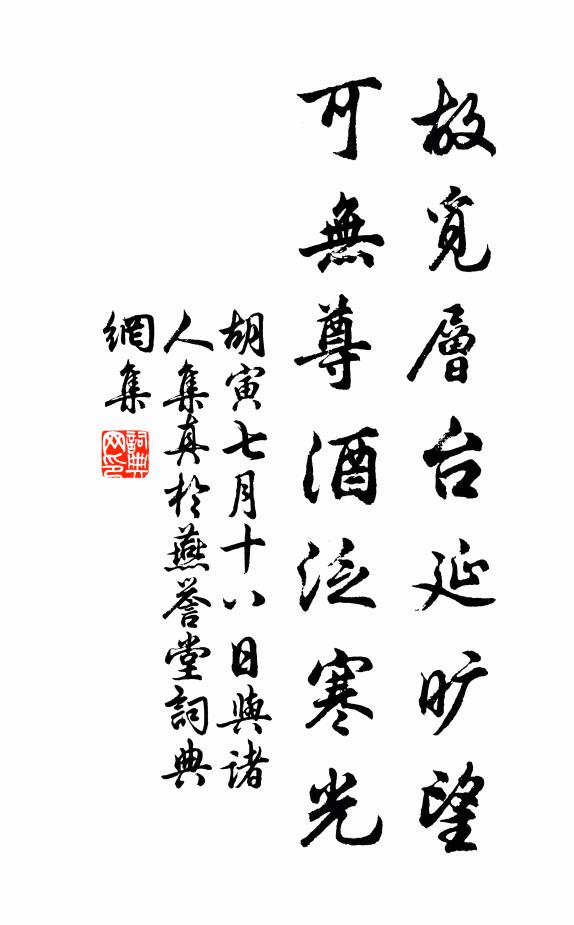 故覓層台延旷望
可無尊酒泛寒光
胡寅七月十八日與諸
人集真於燕譽堂詞典
網集
詞典网印